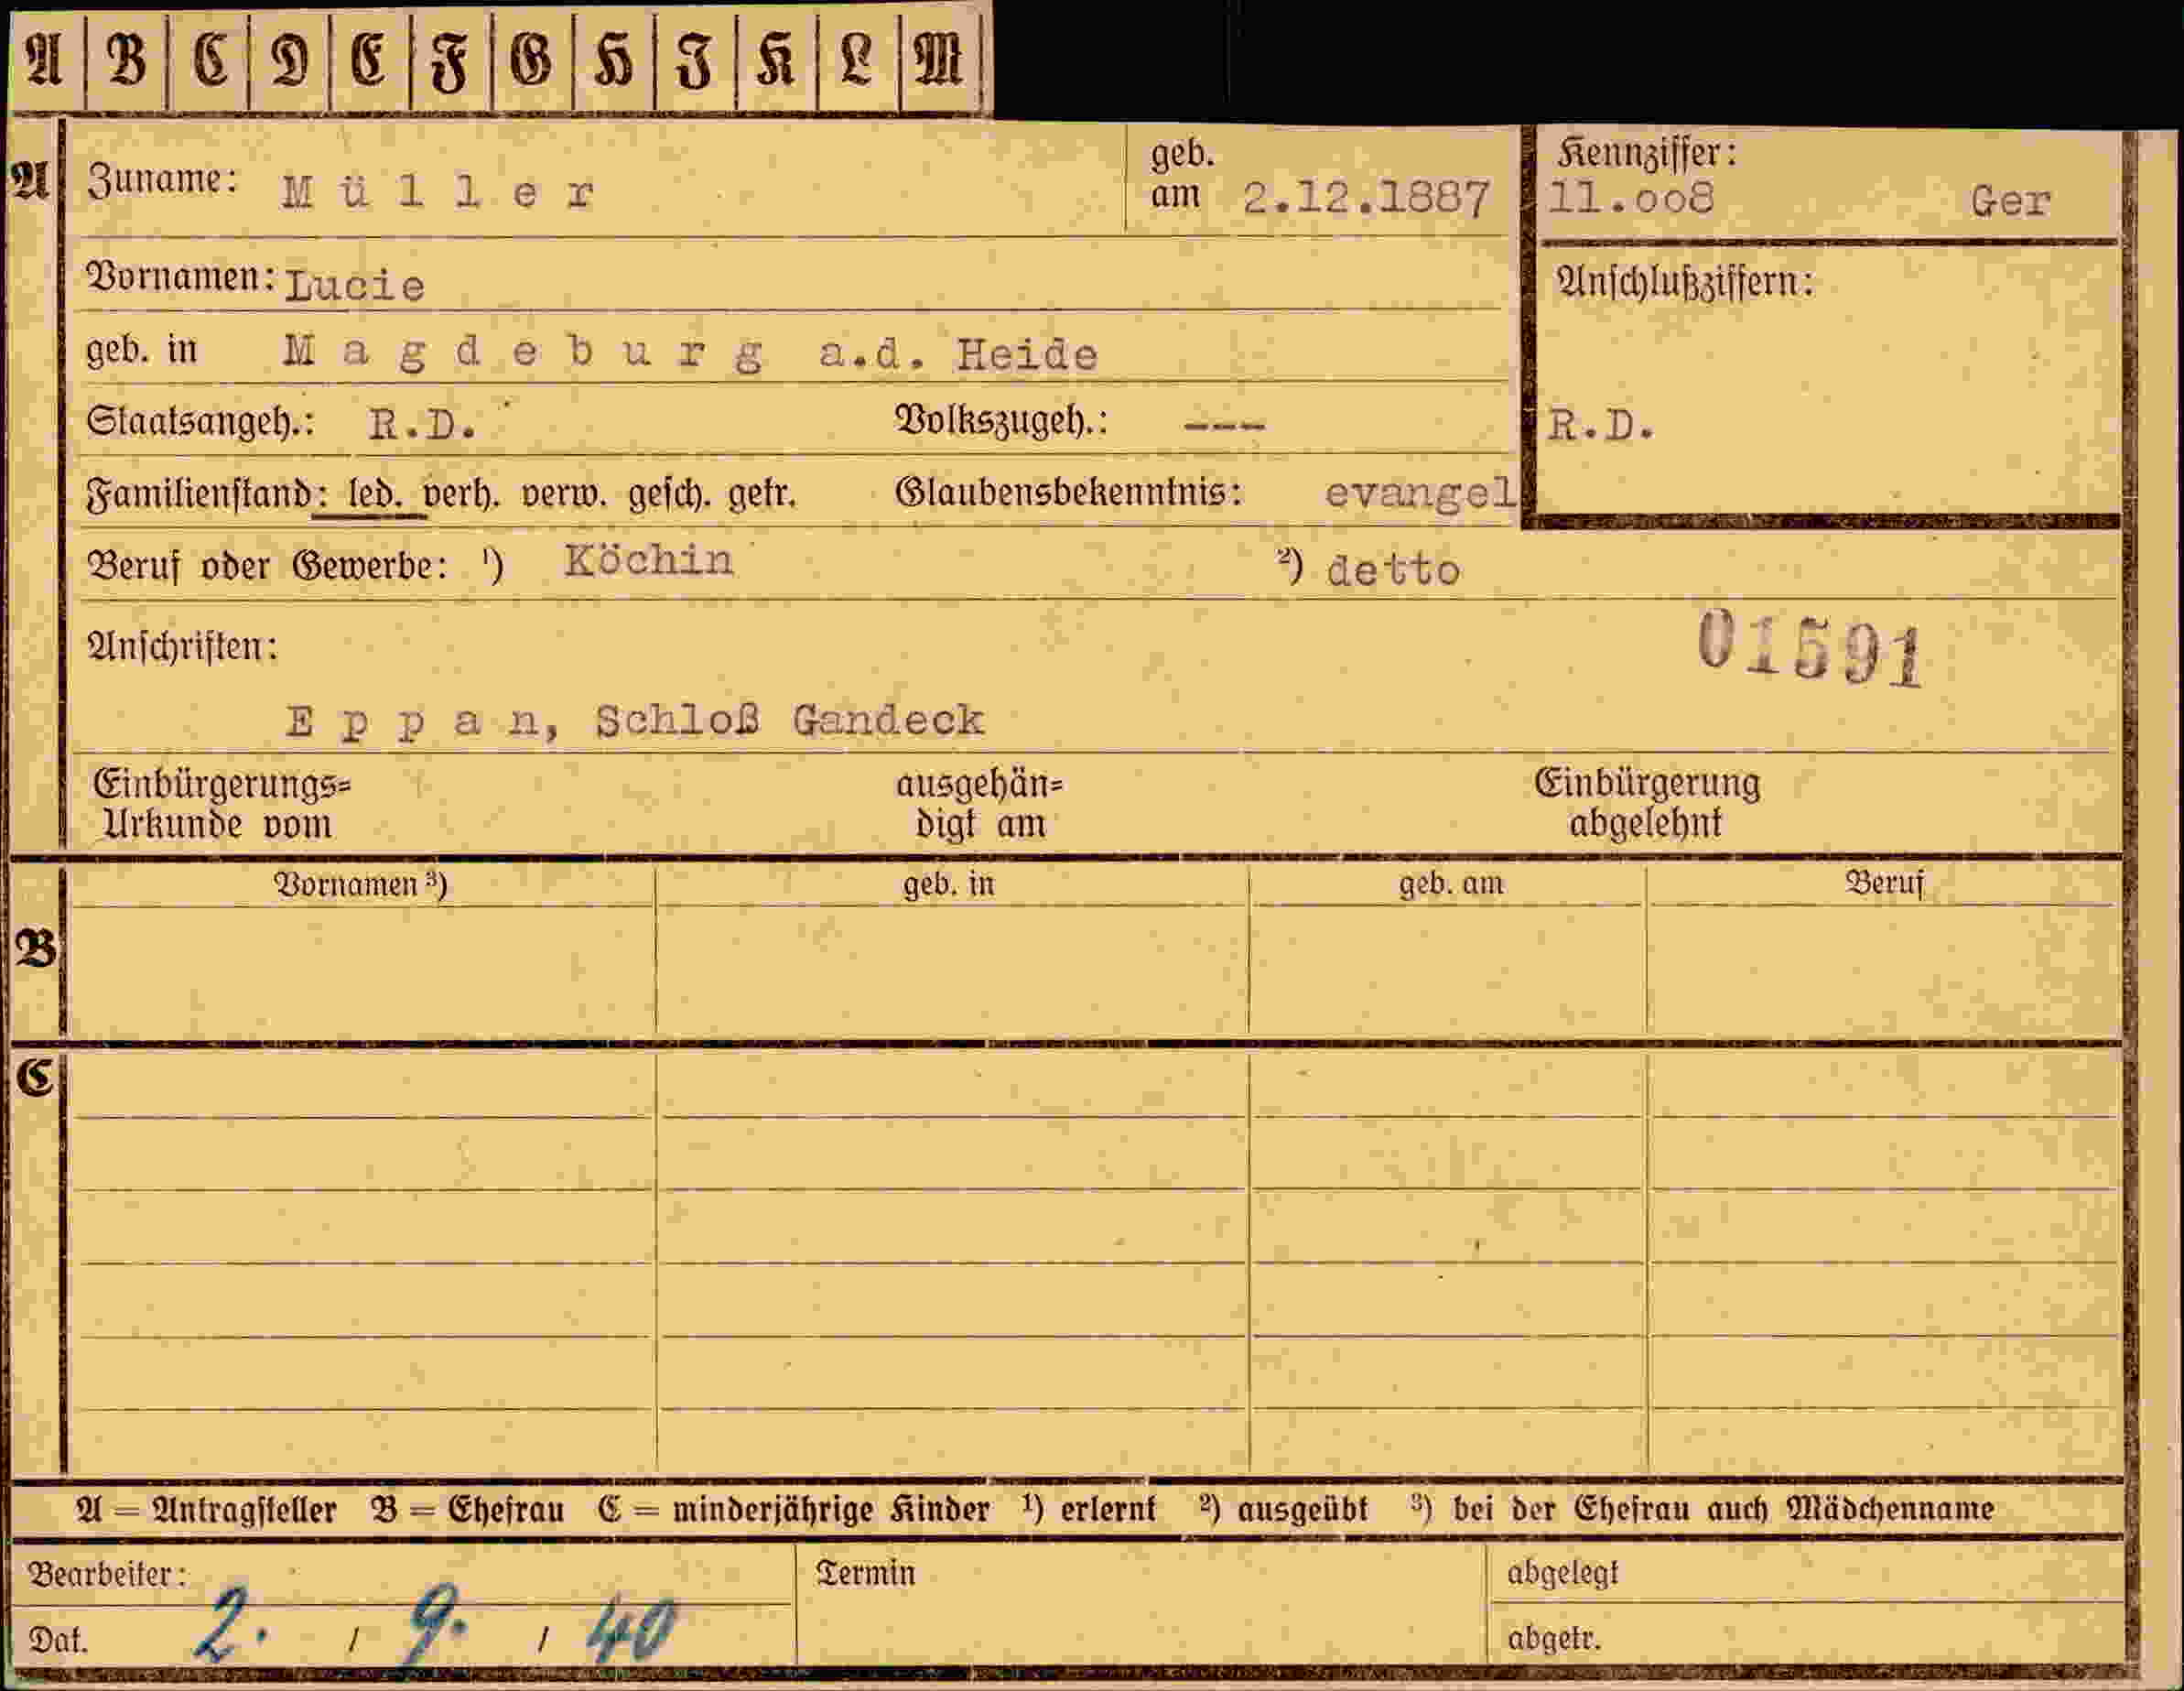 A B C D E F G H I K L M
A Zuname: Müller geb. am 2.12.1887 Kennziffer: 11.oo8 Ger
Vornamen: Lucie Anschlußziffern:
geb. in Magdeburg a.d. Heide
Staatsangeh.: R.D. Volkszugeh.: --- R.D.
Familienstand: led. verh. verw. gesch. getr. Glaubensbekenntnis: evangel
Beruf oder Gewerbe: ¹) Köchin ²) detto
Anschriften: 01591
Eppan, Schloß Gandeck
Einbürgerungs= ausgehän= Einbürgerung
Urkunde vom digt am abgelehnt
Vornamen ³) geb. in geb. am Beruf
B
C
A = Antragsteller B = Ehefrau C = minderjährige Kinder ¹) erlernt ²) ausgeübt ³) bei der Ehefrau auch Mädchenname
Bearbeiter: Termin abgelegt
Dat. 2. / 9. / 40 abgetr.